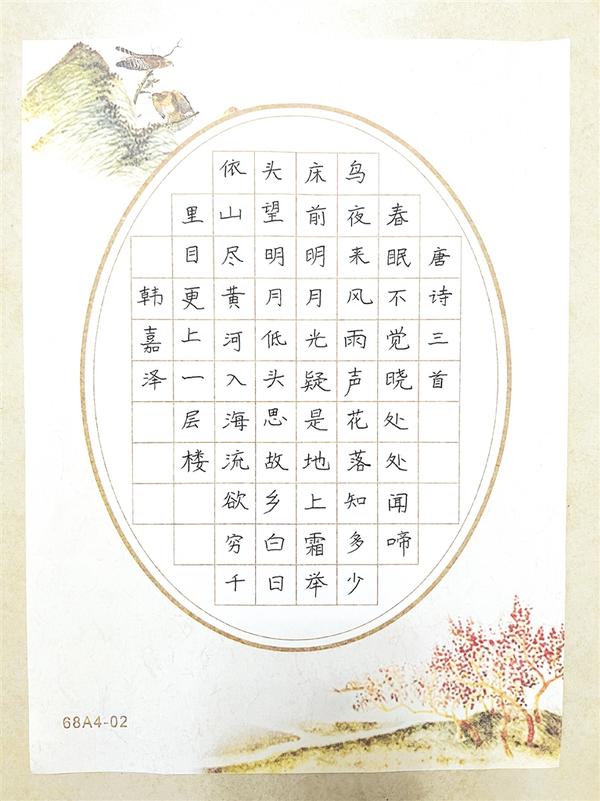 唐诗三首
春眠不觉晓处处闻啼
鸟夜来风雨声花落知多少
床前明月光疑是地上霜举
头望明月低头思故乡白日
依山尽黄河入海流欲穷千
里目更上一层楼
韩嘉泽
68A4-02